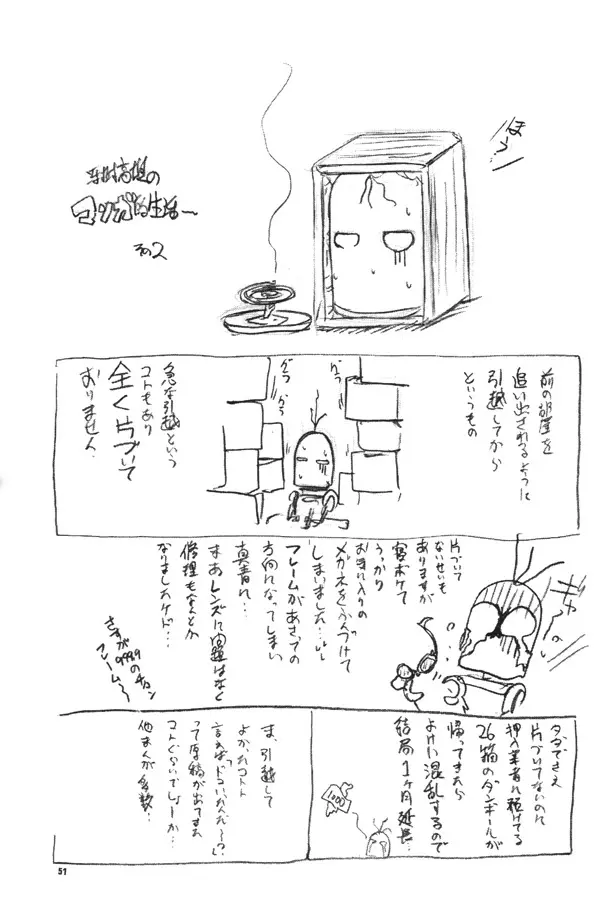 ほう〜
高想の
マンガ的生活〜
その2
前の部屋を
追い出されるように
引越してから
というもの
がつ
がつ
がつ
急な引越という
コトもあり
全く片づいて
おりません
ギャー
片づいて
ないせいも
ありますが
寝ボケて
うっかり
お気に入りの
メガネをふんづけて
しまいました…
フレームがあさっての
方向になってしまい
真青に…
まあレンズに問題はなく
修理もなんとか
なりましたケド…
さすが
9999のチタン
フレーム〜
タダでさえ
片づいてないのに
押入業者に預けてる
26箱のダンボールが
帰ってきたら
よけい混乱するので
結局1ヶ月延長…
1000
ま、引越して
よかったコト
言えば「ドコいったんだ〜!?」
って原稿が出てきた
コトぐらいでしょーか…
他まんが多数…
51